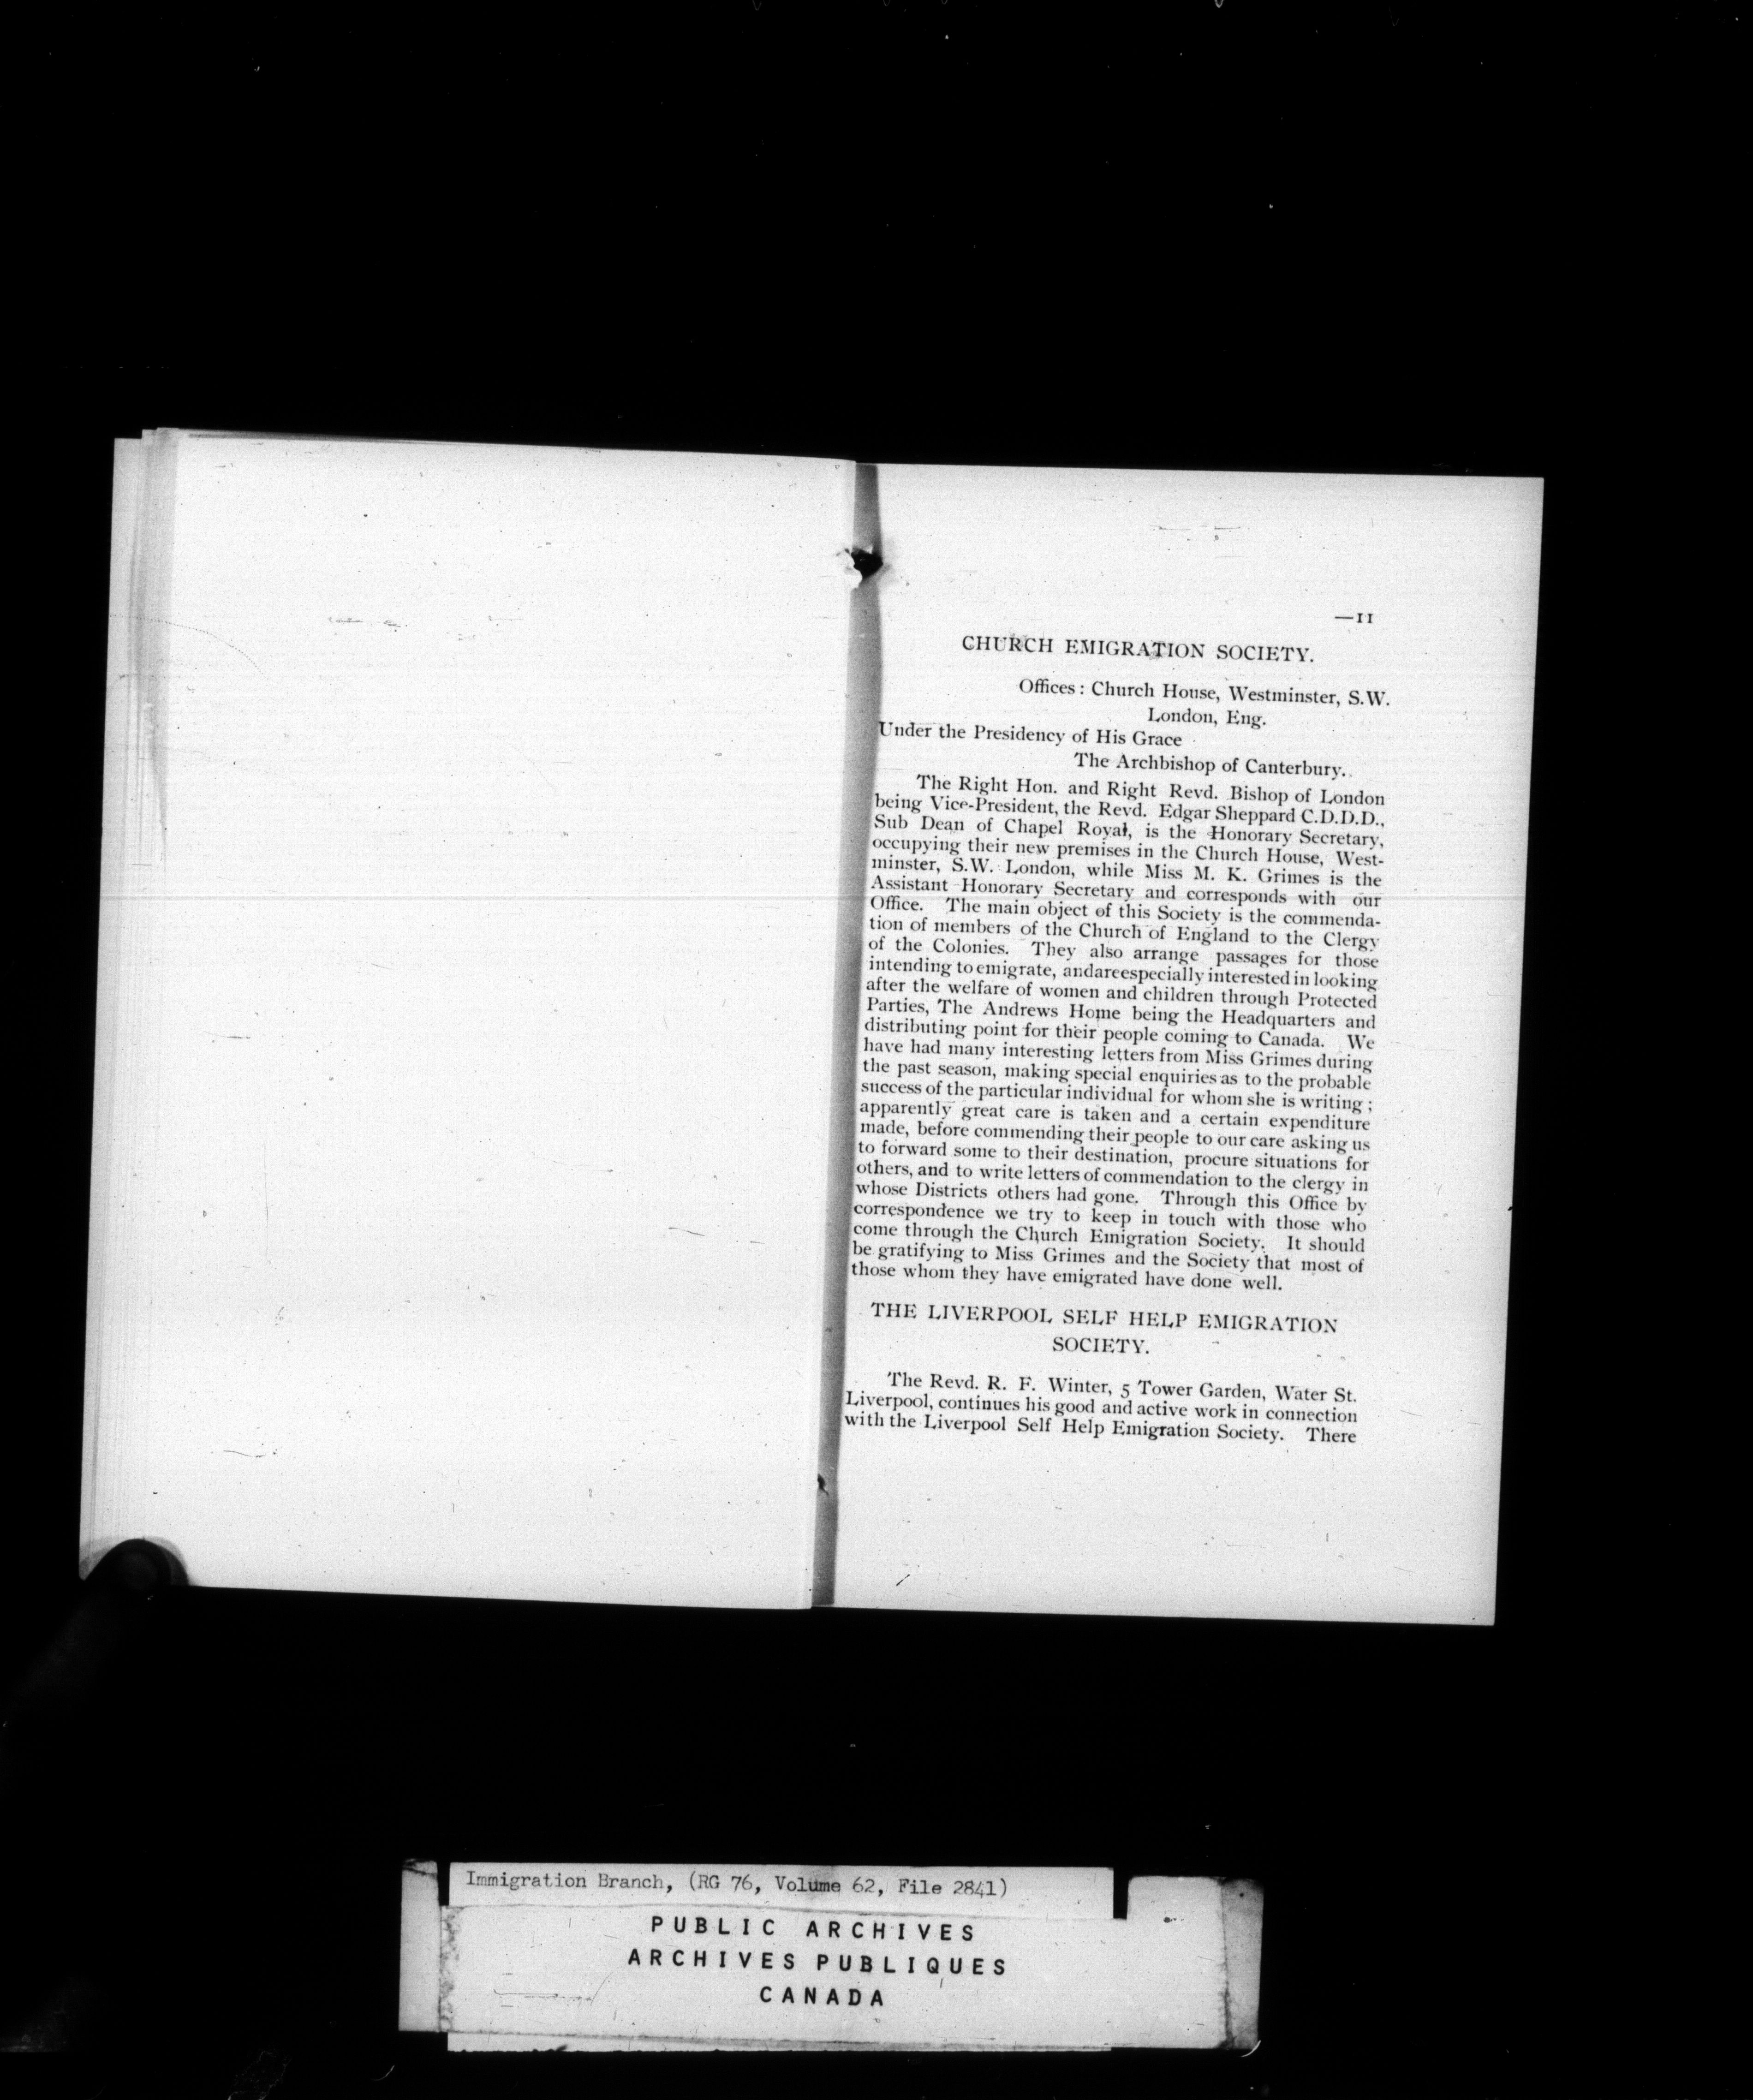 —11
CHURCH EMIGRATION SOCIETY.
Offices: Church House, Westminster, S.W.
London, Eng.
Under the Presidency of His Grace
The Archbishop of Canterbury.
The Right Hon. and Right Revd. Bishop of London
being Vice-President, the Revd. Edgar Sheppard C.D.D.D.,
Sub Dean of Chapel Royal, is the Honorary Secretary,
occupying their new premises in the Church House, West-
minster, S.W. London, while Miss M. K. Grimes is the
Assistant Honorary Secretary and corresponds with our
Office. The main object of this Society is the commenda-
tion of members of the Church of England to the Clergy
of the Colonies. They also arrange passages for those
intending to emigrate, andareespecially interested in looking
after the welfare of women and children through Protected
Parties, The Andrews Home being the Headquarters and
distributing point for their people coming to Canada. We
have had many interesting letters from Miss Grimes during
the past season, making special enquiries as to the probable
success of the particular individual for whom she is writing;
apparently great care is taken and a certain expenditure
made, before commending their people to our care asking us
to forward some to their destination, procure situations for
others, and to write letters of commendation to the clergy in
whose Districts others had gone. Through this Office by
correspondence we try to keep in touch with those who
come through the Church Emigration Society. It should
be gratifying to Miss Grimes and the Society that most of
those whom they have emigrated have done well.
THE LIVERPOOL SELF HELP EMIGRATION
SOCIETY.
The Revd. R. F. Winter, 5 Tower Garden, Water St.
Liverpool, continues his good and active work in connection
with the Liverpool Self Help Emigration Society. There
Immigration Branch, (RG 76, Volume 62, File 2841)
PUBLIC ARCHIVES
ARCHIVES PUBLIQUES
CANADA